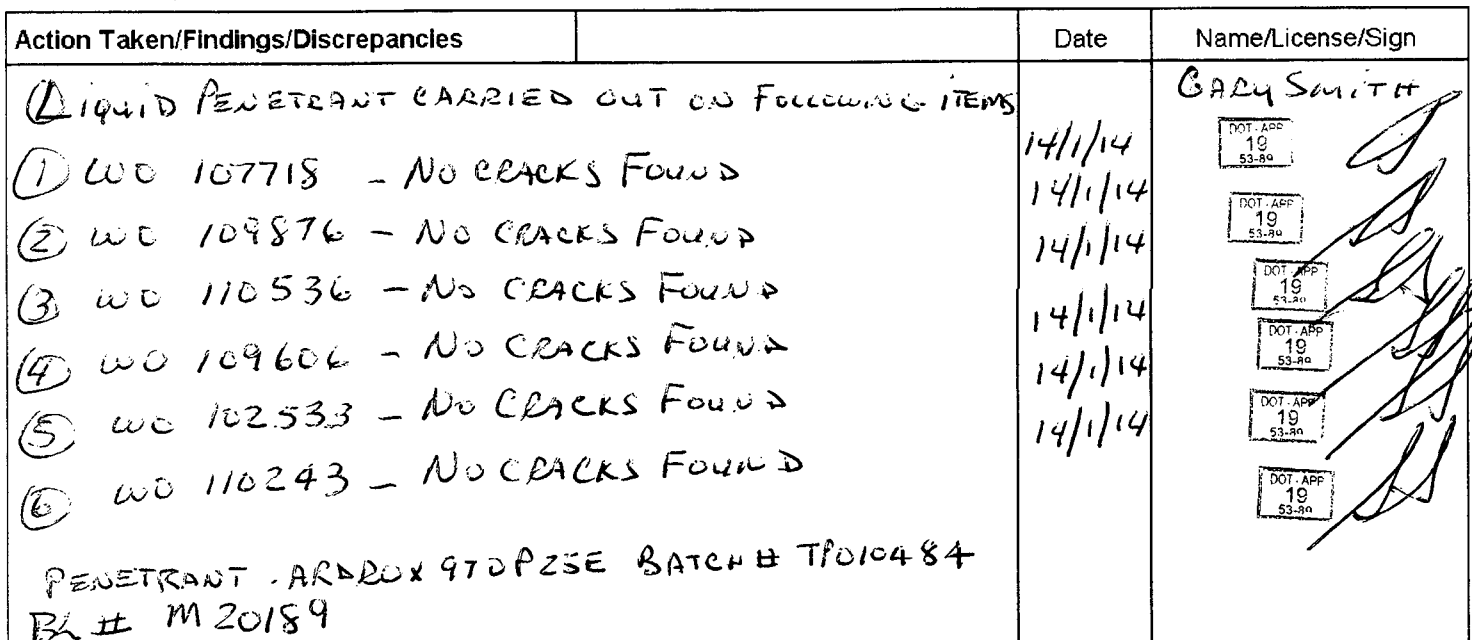 Action Taken/Findings/Discrepancies Date Name/License/Sign
LIQUID PENETRANT CARRIED OUT ON FOLLOWING ITEMS GARY SMITH
① WO 107718 - NO CRACKS FOUND 14/1/14 DOT-APP 19 53-89
② WO 109876 - NO CRACKS FOUND 14/1/14 DOT-APP 19 53-89
③ WO 110536 - NO CRACKS FOUND 14/1/14 DOT-APP 19 53-89
④ WO 109606 - NO CRACKS FOUND 14/1/14 DOT-APP 19 53-89
⑤ WO 102533 - NO CRACKS FOUND 14/1/14 DOT-APP 19 53-89
⑥ WO 110243 - NO CRACKS FOUND 14/1/14 DOT-APP 19 53-89
PENETRANT. ARDROX 970P25E BATCH # TP010484
# M20189